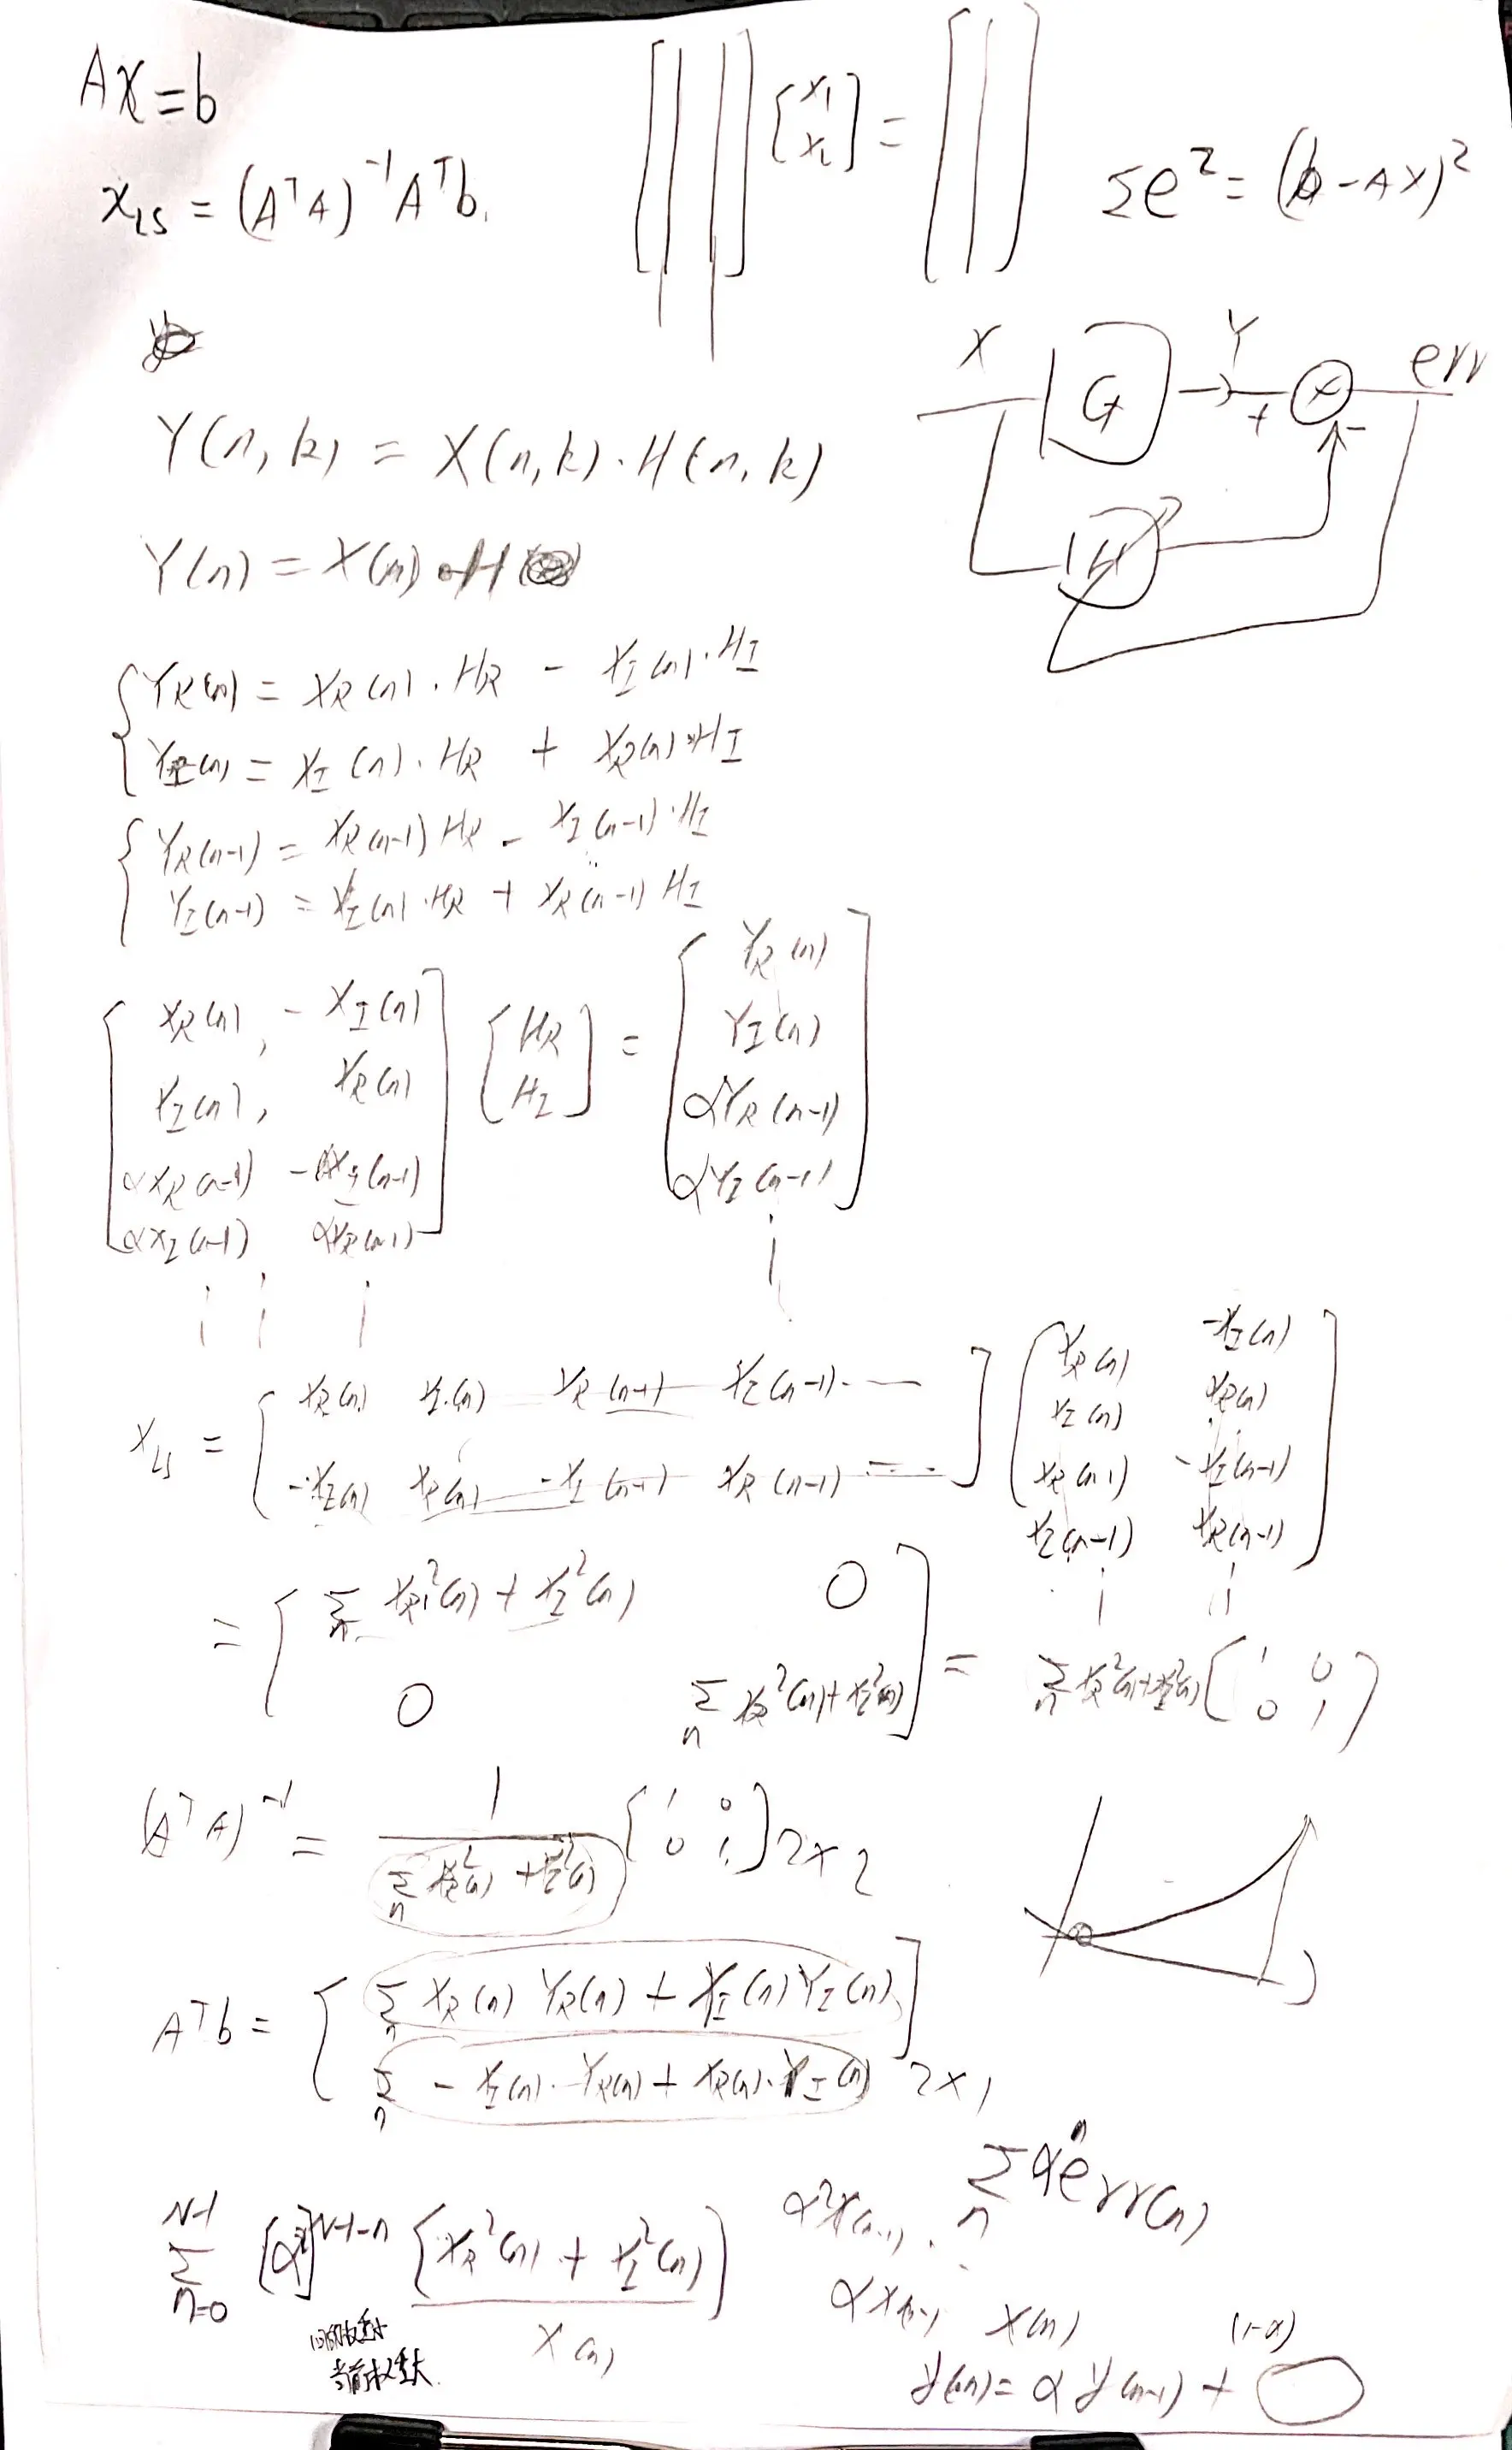 AX=b
[ ] [x₁ x₂] = [ ]
x_LS = (AᵀA)⁻¹Aᵀb.
Σe² = (b-AX)²
X G Y + - err
H
Y(n,k) = X(n,k)·H(n,k)
Y(n) = X(n)·H
Y_R(n) = X_R(n)·H_R - X_I(n)·H_I
Y_I(n) = X_I(n)·H_R + X_R(n)·H_I
Y_R(n-1) = X_R(n-1)H_R - X_I(n-1)·H_I
Y_I(n-1) = X_I(n)·H_R + X_R(n-1)H_I
[ X_R(n), -X_I(n) ] [ H_R ] = [ Y_R(n) ]
[ X_I(n), X_R(n) ] [ H_I ] [ Y_I(n) ]
[ αX_R(n-1) -αX_I(n-1) ] [ αY_R(n-1) ]
[ αX_I(n-1) αX_R(n-1) ] [ αY_I(n-1) ]
X_LS = [ X_R(n) X_I(n) X_R(n-1) X_I(n-1)... ] [ X_R(n) -X_I(n) ]
[ -X_I(n) X_R(n) -X_I(n-1) X_R(n-1) ... ] [ X_I(n) X_R(n) ]
[ X_R(n-1) -X_I(n-1) ]
[ X_I(n-1) X_R(n-1) ]
= [ Σn X_R²(n) + X_I²(n) 0 ]
[ 0 Σn X_R²(n)+X_I²(n) ] = Σn X_R²(n)+X_I²(n) [ 1 0 0 1 ]
(AᵀA)⁻¹ = 1 / Σn X_R²(n) + X_I²(n) [ 1 0 0 1 ] 2×2
Aᵀb = [ Σn X_R(n) Y_R(n) + X_I(n) Y_I(n) ]
[ Σn - X_I(n)·Y_R(n) + X_R(n)·Y_I(n) ] 2×1
Σn αⁿ err(n)
Σ N-1 n=0 [α²]^N-1-n [X_R²(n) + X_I²(n)]
X(n)
α²X(n-1)
αX(n-1) X(n)
当前权重大
y(n) = α y(n-1) + (1-α)